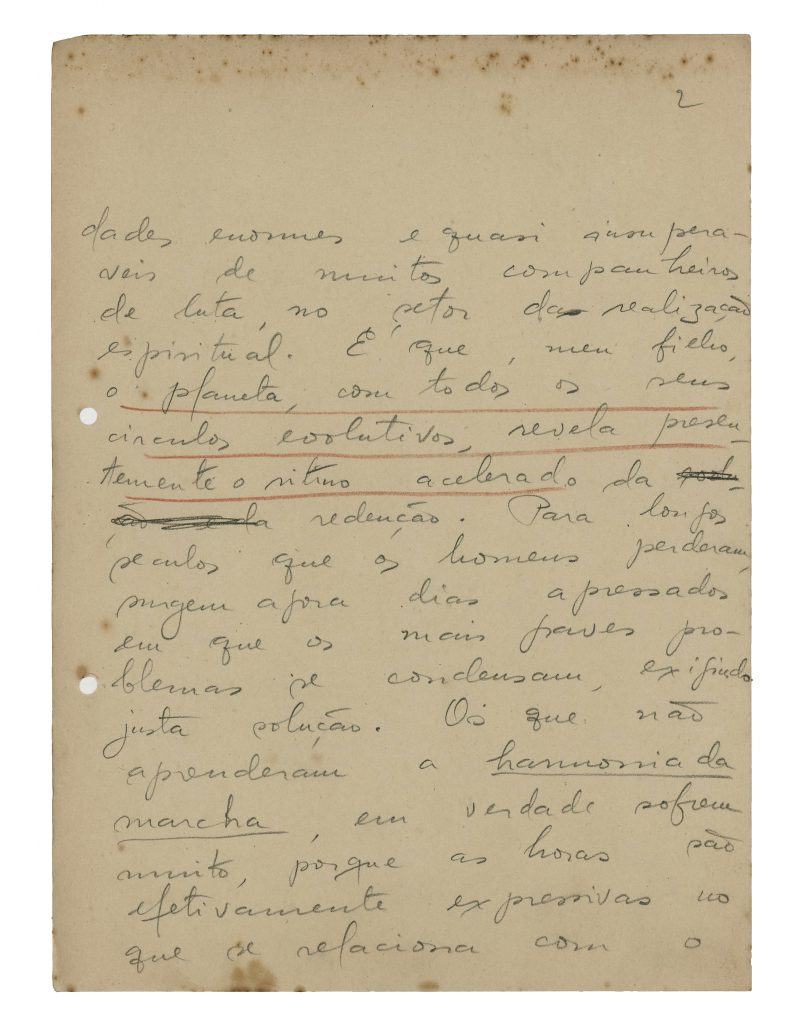 2
dades enormes e quasi insupera-
veis de muitos companheiros
de luta, no setor da realização
espiritual. É que, meu filho,
o planeta, com todos os seus
circulos evolutivos, revela presen-
temente o ritmo acelerado da
redenção. Para longos
seculos que os homens perderam,
surgem agora dias apressados
em que os mais graves pro-
blemas se condensam, exigindo
justa solução. Os que não
aprenderam a harmonia da
marcha, em verdade sofrem
muito, porque as horas são
efetivamente expressivas no
que se relaciona com o